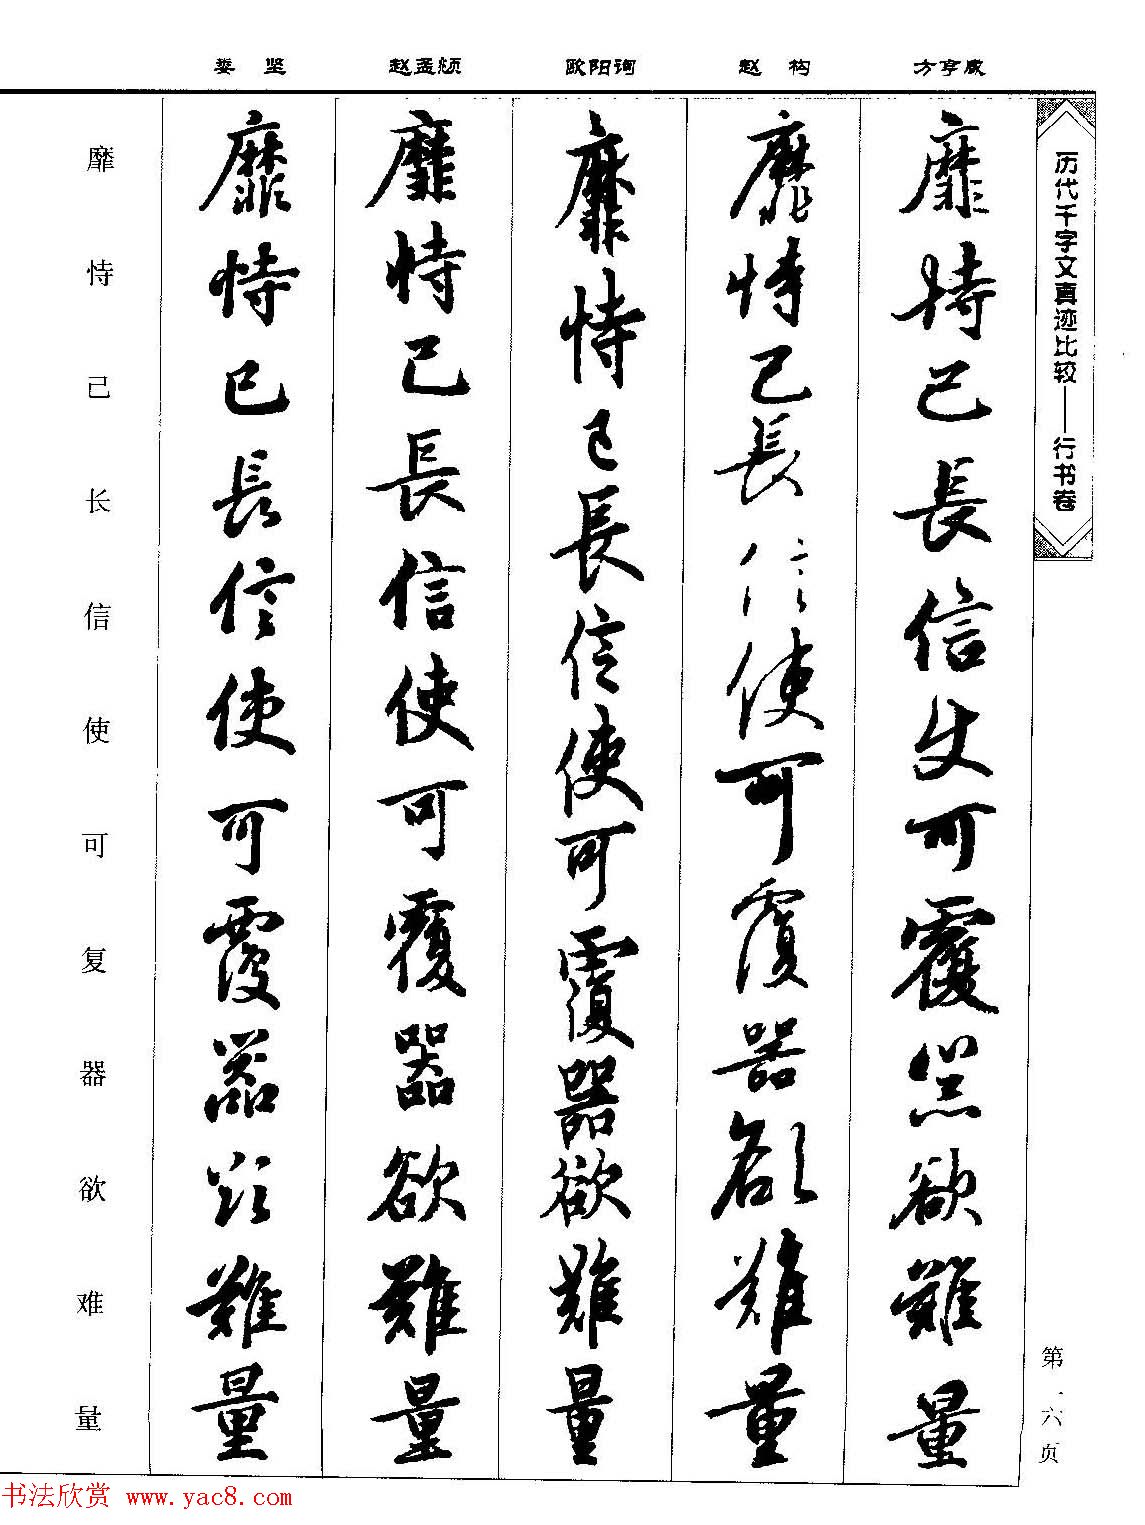 历代千字文真迹比较——行书卷
第一六页
方亨咸
靡恃己長信使可覆器欲難量
赵构
靡恃己長信使可覆器欲難量
欧阳询
靡恃己長信使可覆器欲難量
赵孟頫
靡恃己長信使可覆器欲難量
娄坚
靡恃己長信使可覆器欲難量
靡恃己长信使可复器欲难量
书法欣赏 www.yac8.com